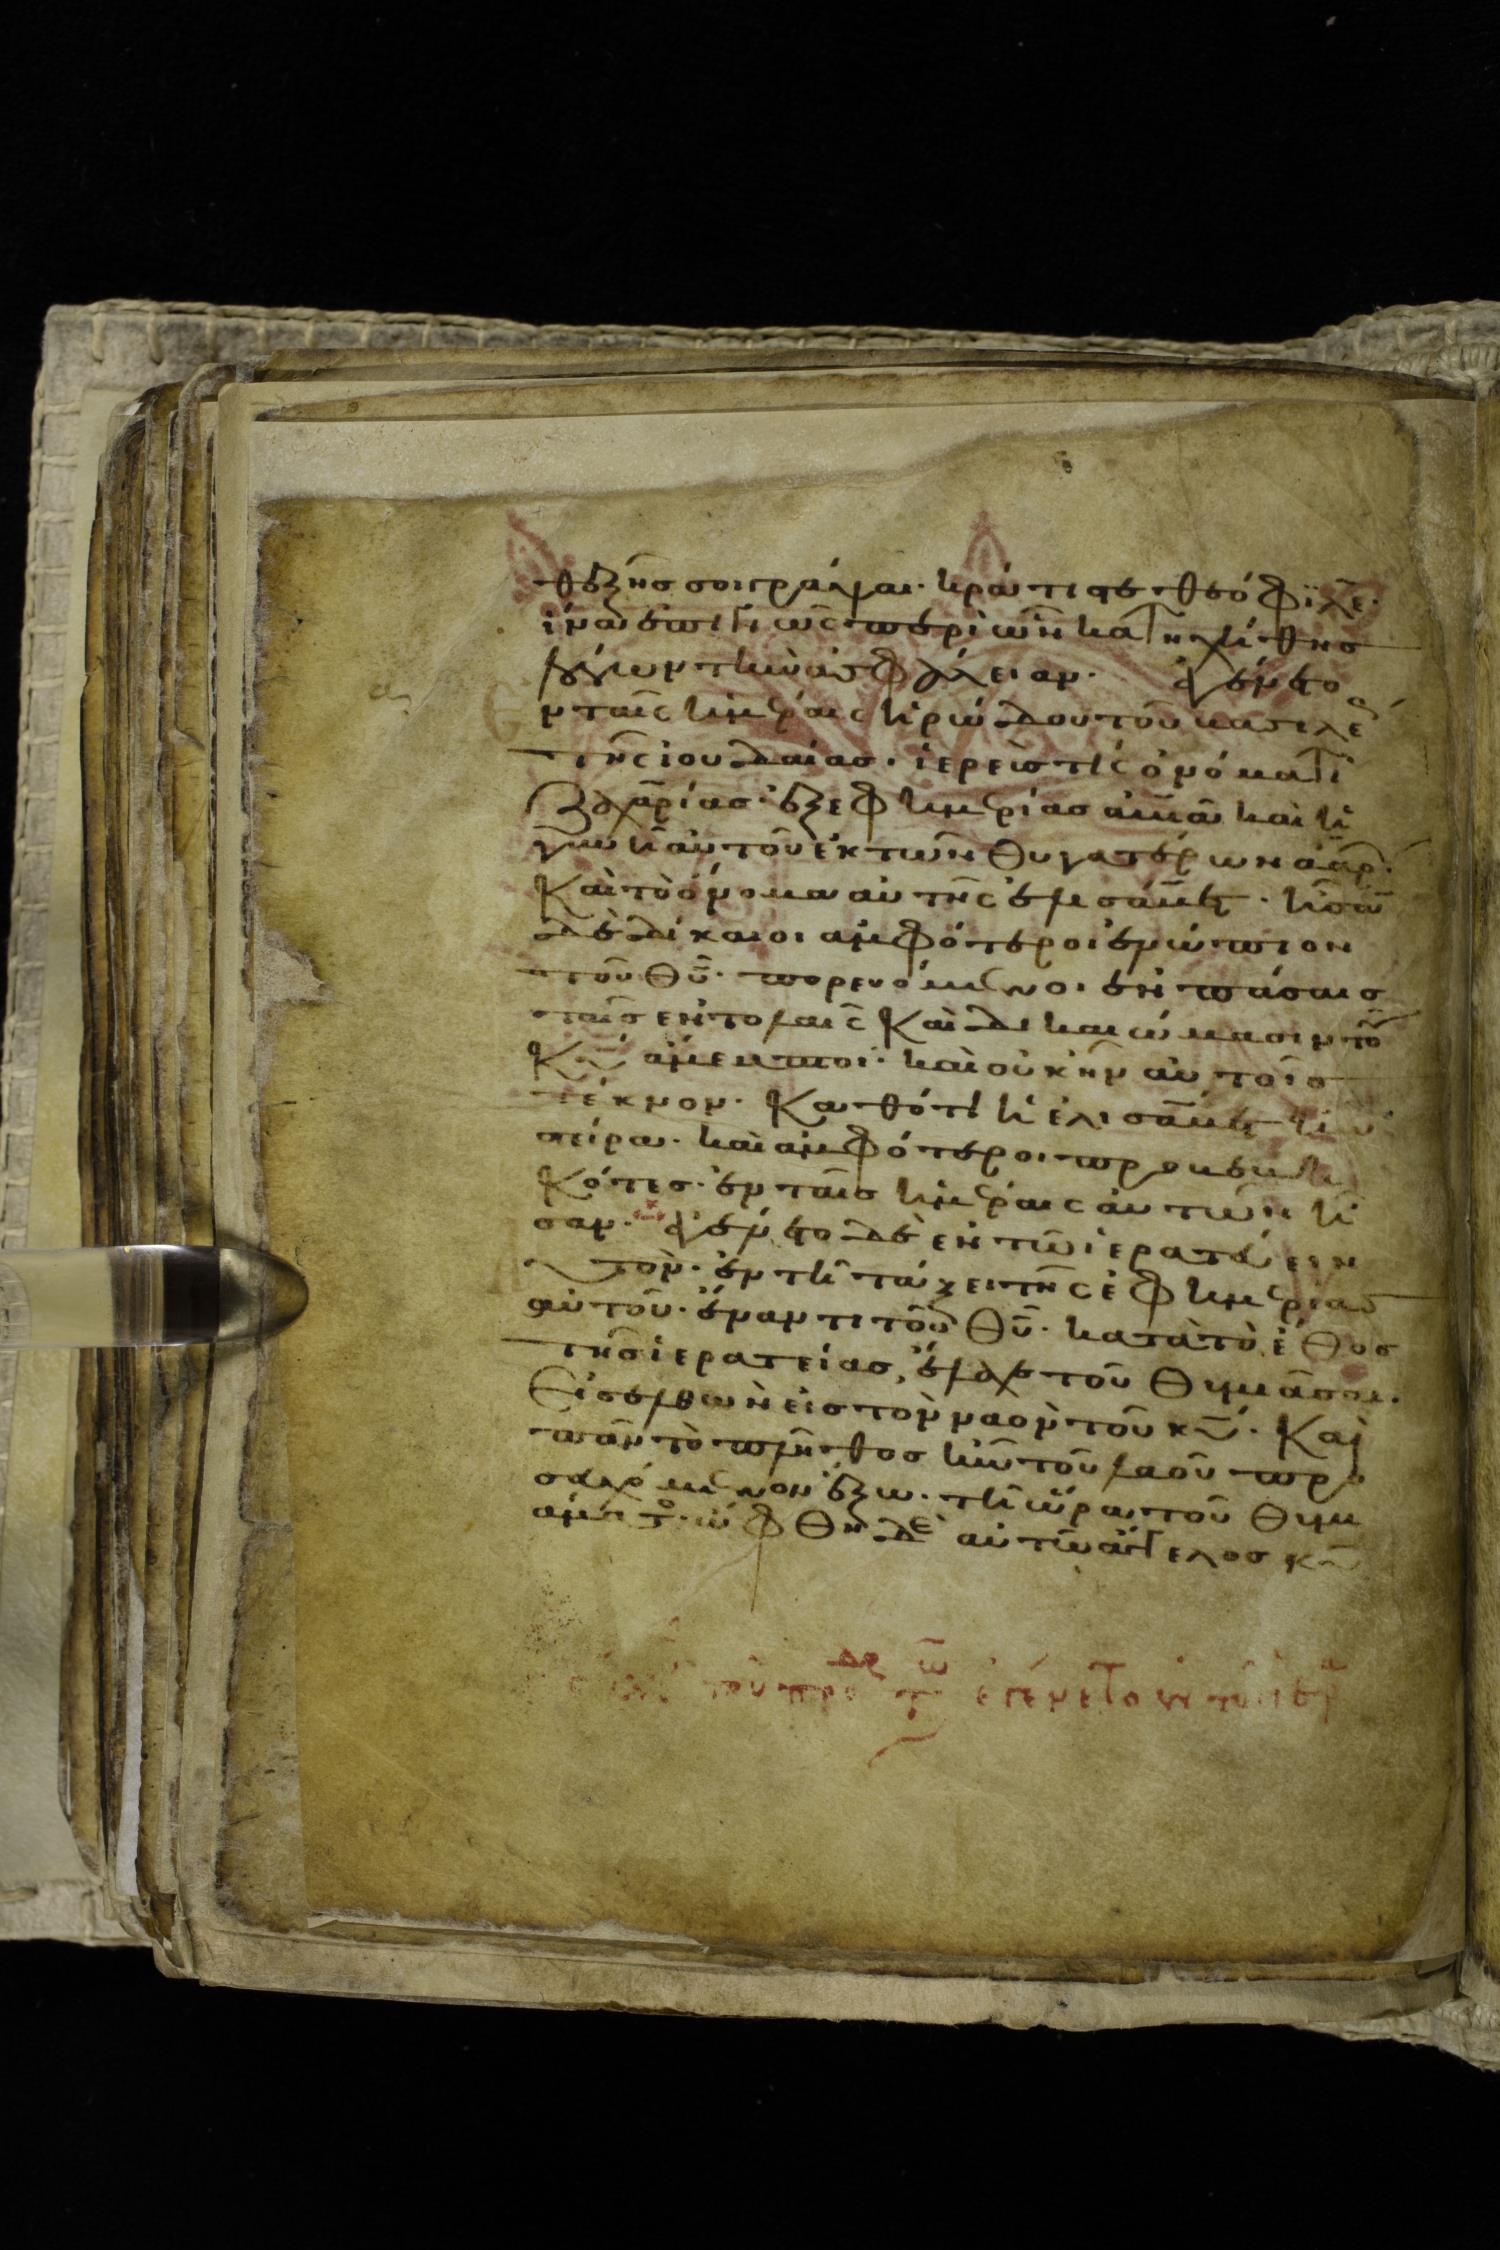 θεξῆς σοι γράψαι· κράτιστε θεόφιλε·
ἵνα ἐπιγνῶς περὶ ὧν κατηχήθης
λόγων τὴν ἀσφάλειαν· ἐγένετο
ἐν ταῖς ἡμέραις ἡρώδου τοῦ βασιλέως
τῆς ἰουδαίας· ἱερεύς τίς ὀνόματι
Ζαχαρίας· ἐξ ἐφημερίας ἀβιᾶ καὶ ἡ
γυνὴ αὐτοῦ ἐκ τῶν θυγατέρων ἀαρ
Καὶ τὸ ὄνομα αὐτῆς ἐλισάβετ· ἦσαν
δὲ δίκαιοι ἀμφότεροι ἐνώπιον
τοῦ θῦ· πορευόμενοι ἐν πάσαις
ταῖς ἐντολαῖς Καὶ δικαιώμασιν τοῦ
Κῦ ἄμεμπτοι· καὶ οὐκ ἦν αὐτοῖς
τέκνον· Καθότι ἡ ἐλισάβετ ἦν
στείρα· καὶ ἀμφότεροι προβεβη
Κότες· ἐν ταῖς ἡμέραις αὐτῶν ἦ
σαν· ἐγένετο δὲ ἐν τῶ ἱερατεύειν
αὐτὸν· ἐν τῆ τάξει τῆς ἐφημερίας
αὐτοῦ· ἔναντι τοῦ θῦ· κατὰ τὸ ἔθος
τῆς ἱερατείας, ἔλαχε τοῦ θυμιᾶσαι·
Εἰσελθὼν εἰς τὸν ναὸν τοῦ κῦ· Καὶ
πᾶν τὸ πλῆθος ἦν τοῦ λαοῦ προ
σευχόμενον ἔξω· τῆ ὥρα τοῦ θυμι
άματος· ὤφθη δὲ αὐτῶ ἄγγελος κῦ
τοῦ προδρ τ ἐγένετο ἐν τῶ ἱερα